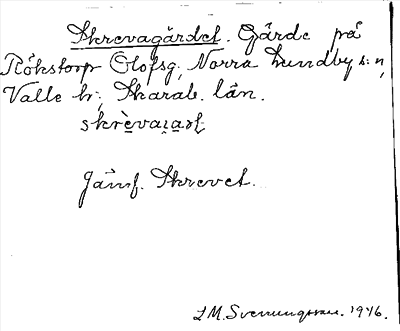 Skrevagärdet. Gärde på
Rökstorp Olofsg., Norra Lundby s:n,
Valle h:, Skarab. län.
Jämf. Skrevet.
I.M. Svenungsson. 1946.